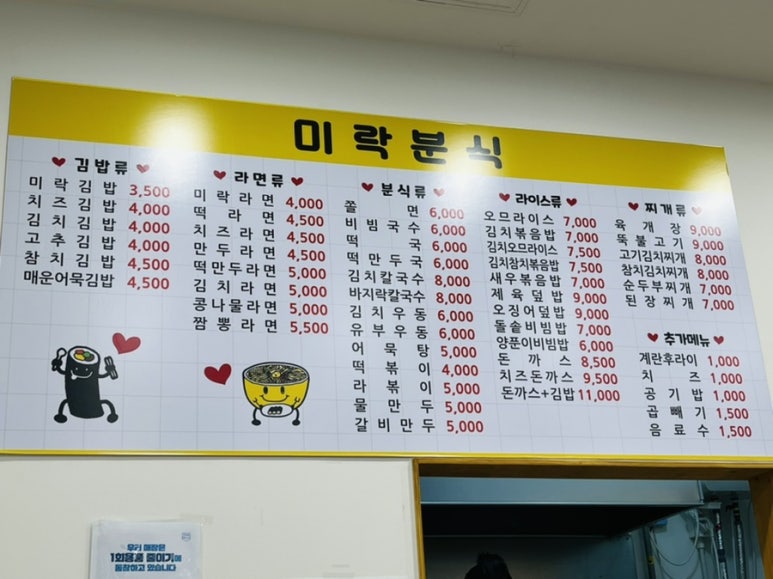 미락분식
김밥류
미락김밥 3,500
치즈김밥 4,000
김치김밥 4,000
고추김밥 4,000
참치김밥 4,500
매운어묵김밥 4,500
라면류
미락라면 4,000
떡라면 4,500
치즈라면 4,500
만두라면 4,500
떡만두라면 5,000
김치라면 5,000
콩나물라면 5,500
짬뽕라면 5,500
분식류
쫄면 6,000
비빔국수 6,000
떡국 6,000
떡만두국 6,000
김치칼국수 8,000
바지락칼국수 8,000
김치우동 6,000
유부우동 6,000
어묵탕 5,000
떡볶이 4,000
라볶이 5,000
물만두 5,000
갈비만두 5,000
라이스류
오므라이스 7,000
김치볶음밥 7,000
김치오므라이스 7,500
김치참치볶음밥 7,500
새우볶음밥 7,000
제육덮밥 9,000
오징어덮밥 9,000
돌솥비빔밥 7,000
양푼이비빔밥 6,000
돈까스 8,500
치즈돈까스 9,500
돈까스+김밥 11,000
찌개류
육개장 9,000
뚝불고기 9,000
고기김치찌개 8,000
참치김치찌개 8,000
순두부찌개 7,000
된장찌개 7,000
추가메뉴
계란후라이 1,000
치즈 1,000
공기밥 1,000
곱빼기 1,500
음료수 1,500
우리 매장은
1회용품 줄이기에
동참하고 있습니다